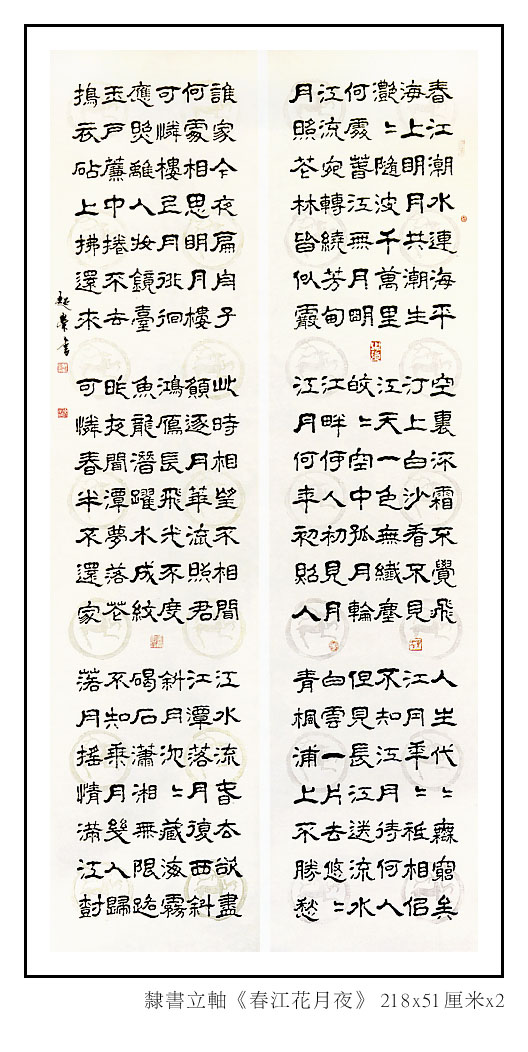 春江潮水連海平
海上明月共潮生
灩〻隨波千萬里
何處春江無月明
江流宛轉繞芳甸
月照花林皆似霰
空裏流霜不覺飛
汀上白沙看不見
江天一色無纖塵
皎〻空中孤月輪
江畔何人初見月
江月何年初照人
人生代〻無窮矣
江月年〻祗相似
不知江月待何人
但見長江送流水
白雲一片去悠〻
青楓浦上不勝愁
誰家今夜扁舟子
何處相思明月樓
可憐樓上月徘徊
應照離人妝鏡臺
玉戶簾中捲不去
搗衣砧上拂還來
此時相望不相聞
願逐月華流照君
鴻雁長飛光不度
魚龍潛躍水成紋
昨夜閒潭夢落花
可憐春半不還家
江水流春去欲盡
江潭落月復西斜
斜月沉〻藏海霧
碣石瀟湘無限路
不知乘月幾人歸
落月搖情滿江樹
隸書立軸《春江花月夜》 218x51厘米x2